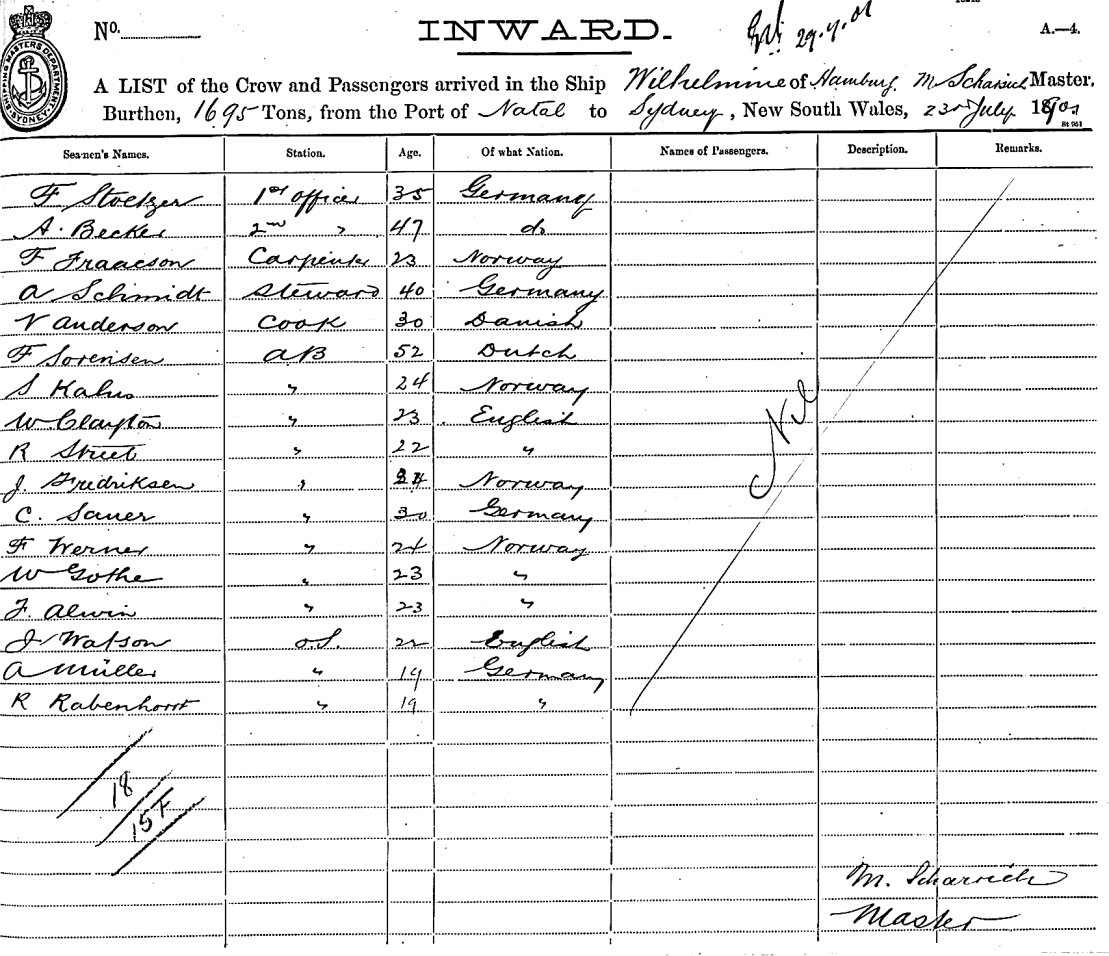 No.
INWARD.
29.7.01
A.—4.
SHIPPING MASTERS DEPARTMENT SYDNEY
A LIST of the Crew and Passengers arrived in the Ship Wilhelmine of Hamburg. M Scharrich Master.
Burthen, 1695 Tons, from the Port of Natal to Sydney, New South Wales, 23rd July 1901
Seamen's Names. Station. Age. Of what Nation. Names of Passengers. Description. Remarks.
F Stoeltzer 1st officer 35 Germany
A. Becker 2nd " 47 do
F Fraacson Carpenter 23 Norway
A Schmidt Steward 40 Germany
V Anderson Cook 30 Danish
F Sorensen AB 52 Dutch
S Kahns " 24 Norway
W Clayton " 23 English
R Street " 22 "
J. Fredriksen " Norway
C. Sauer " 30 Germany
F Werner " 24 Norway
W Gothe " 23 "
F. Alwin " 23 "
J Watson O.S. 22 English
A Müller " 19 Germany
R Rabenhorst " 19 "
Nil
18
15 F
M. Scharrich
Master